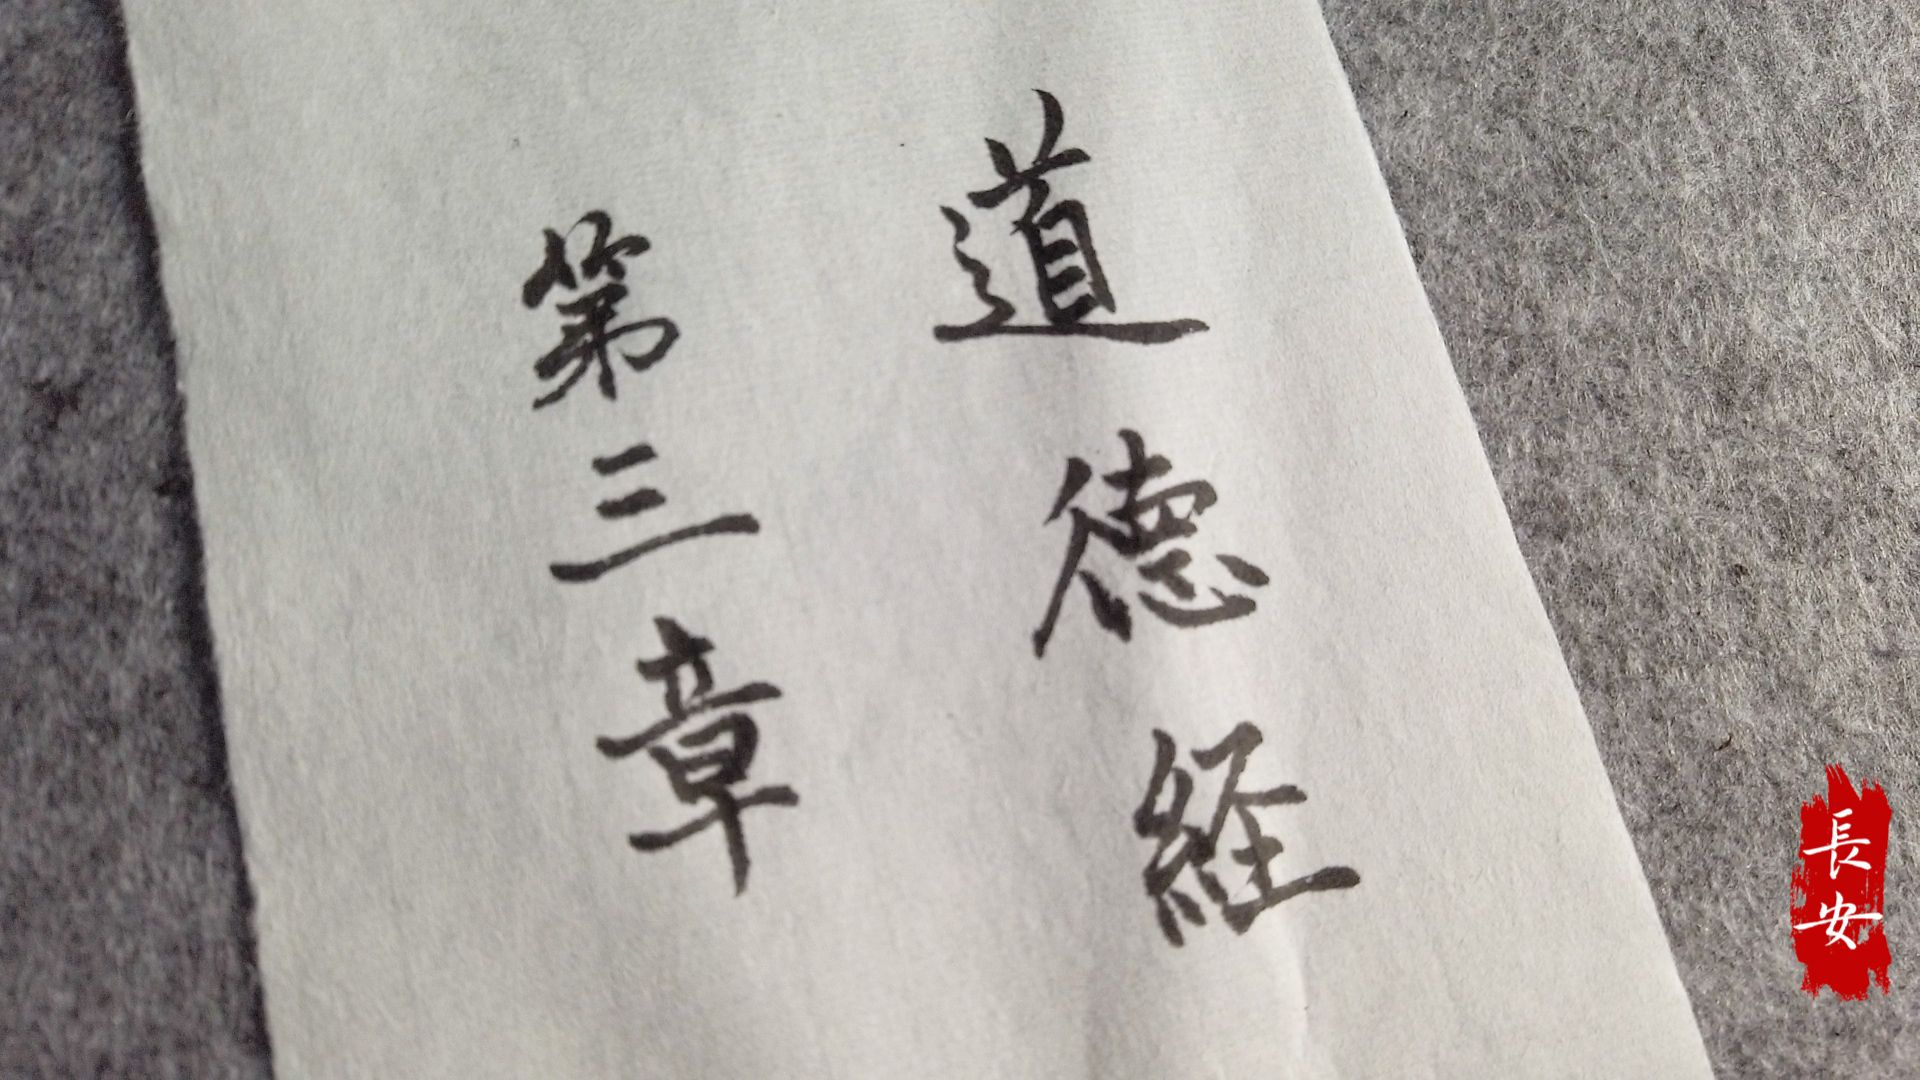 道德経
第三章
長安